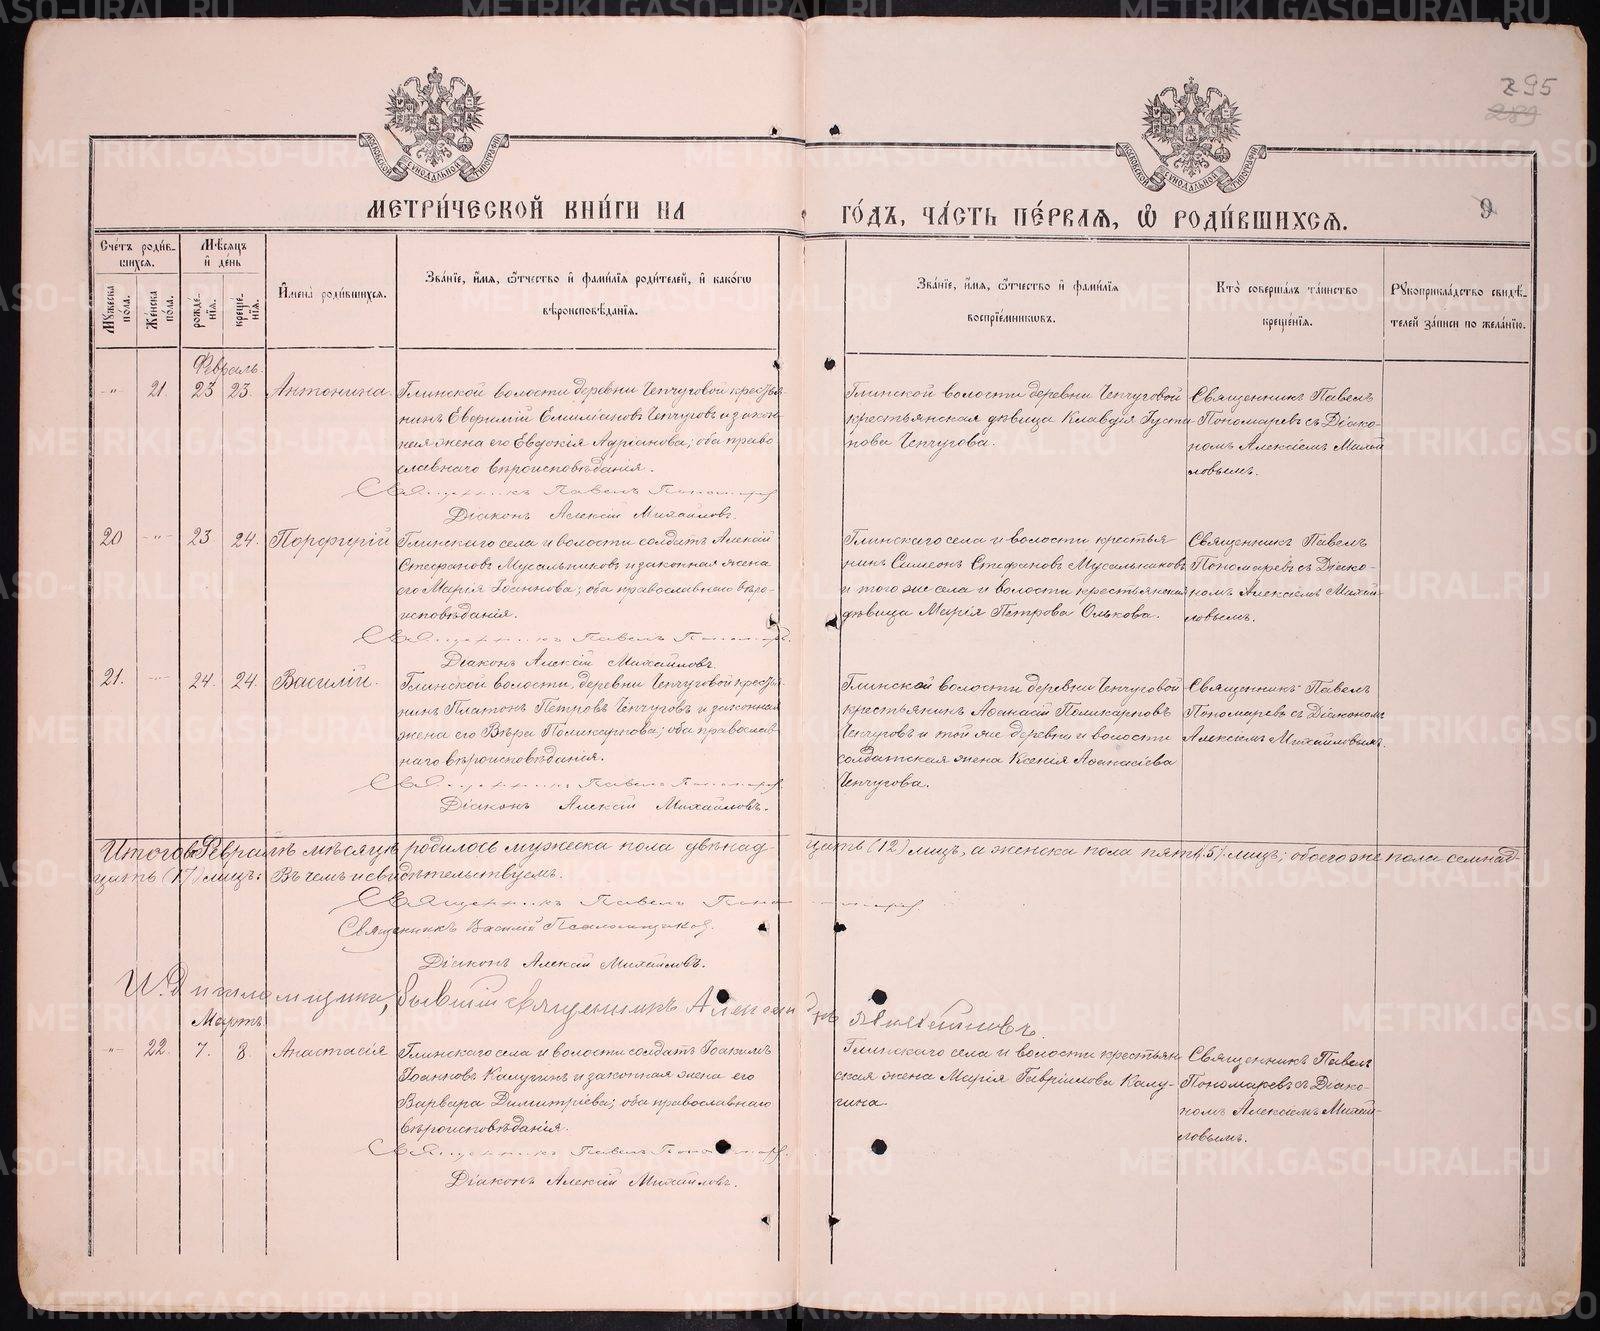 295
289
МОСКОВСКОЙ СѴНОДАЛЬНОЙ ТИПОГРАФІИ
МОСКОВСКОЙ СѴНОДАЛЬНОЙ ТИПОГРАФІИ
МЕТРИ́ЧЕСКОЙ КНИ́ГИ НА ГО́ДЪ, ЧА́СТЬ ПЕ́РВАЯ, Ѡ РОДИ́ВШИХСЯ.
9
Сче́тъ роди́в-
шихся.
Мѣ́сяцъ
и҆ де́нь
Му́жеска
по́ла.
Же́нска
по́ла.
рожде́-
нїя.
креще́-
нїя.
И҆мена̀ роди́вшихся.
Зва́нїе, и҆́мя, ѻ҆́тчество и҆ фами́лїя роди́телей, и҆ како́гѡ
вѣроисповѣ́данїя.
Зва́нїе, и҆́мя, ѻ҆́тчество и҆ фами́лїя
воспрїе́мникѡвъ.
Кто̀ соверша́лъ та́инство
креще́нїя.
Рукоприкла́дство свидѣ́-
телей за́писи по жела́нїю.
Февраль.
-"- 21. 23 23. Антонина.
Глинской волости деревни Чепчуговой крестья-
нинъ Евфимій Емиліановъ Чепчуговъ и закон-
ная жена его Евдокія Адріанова; оба право
славнаго вѣроисповѣданія.
Священникъ Павелъ Пономаревъ
Діаконъ Алексій Михайловъ.
Глинской волости деревни Чепчуговой
крестьянская дѣвица Клавдія Густи
нова Чепчугова.
Священникъ Павелъ
Пономаревъ съ Діако-
номъ Алексіемъ Михай
ловымъ.
20 -"- 23 24. Порфирій
Глинскаго села и волости солдатъ Алексій
Стефановъ Мусальниковъ и законная жена
его Марія Іоаннова; оба православнаго вѣро-
исповѣданія.
Священникъ Павелъ Пономаревъ
Діаконъ Алексій Михайловъ.
Глинскаго села и волости крестья-
нинъ Симеонъ Стефановъ Мусальниковъ
и того же села и волости крестьянская
дѣвица Марія Петрова Олькова.
Священникъ Павелъ
Пономаревъ съ Діако-
номъ Алексіемъ Михай-
ловымъ.
21. -"- 24. 24. Василій.
Глинской волости, деревни Чепчуговой крестья-
нинъ Платонъ Петровъ Чепчуговъ и законная
жена его Вѣра Поликарпова; оба православ-
наго вѣроисповѣданія.
Священникъ Павелъ Пономаревъ
Діаконъ Алексій Михайловъ.
Глинской волости деревни Чепчуговой
крестьянинъ Афанасій Поликарповъ
Чепчуговъ и той же деревни и волости
солдатская жена Ксенія Афанасіева
Чепчугова.
Священникъ Павелъ
Пономаревъ съ Діакономъ
Алексіемъ Михайловымъ.
Итого въ Февралѣ мѣсяцѣ родилось мужеска пола двѣнад-
цать (12) лицъ, а женска пола пять (5) лицъ; обоего же пола семнад-
цать (17) лицъ: Въ чемъ и свидѣтельствуемъ.
Священникъ Павелъ Пономаревъ.
Священникъ Василій Псаломщиковъ.
Діаконъ Алексій Михайловъ.
И. д. псаломщика, бывшій священникъ Александръ
Мартъ
-"- 22. 7. 8. Анастасія
Глинскаго села и волости солдатъ Іоакимъ
Іоанновъ Калугинъ и законная жена его
Варвара Димитріева; оба православнаго
вѣроисповѣданія.
Священникъ Павелъ Пономаревъ
Діаконъ Алексій Михайловъ.
Глинскаго села и волости крестьян
ская жена Марія Гавріилова Калу-
гина.
Священникъ Павелъ
Пономаревъ съ Діако-
номъ Алексіемъ Михай-
ловымъ.
METRIKI.GASO-URAL.RU